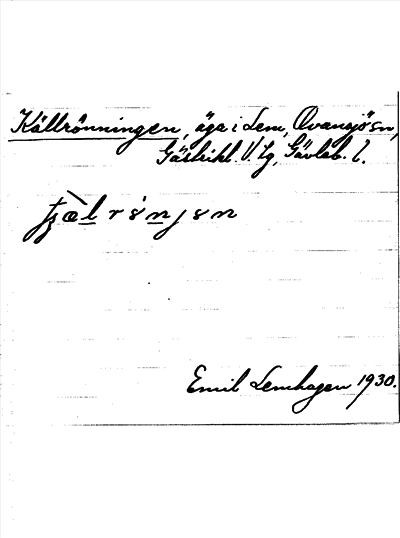 Källrönningen, äga i Lem, Ovansjö sn,
Gästrikl. V. tg, Gävleb. l.
Emil Lemhagen 1930.